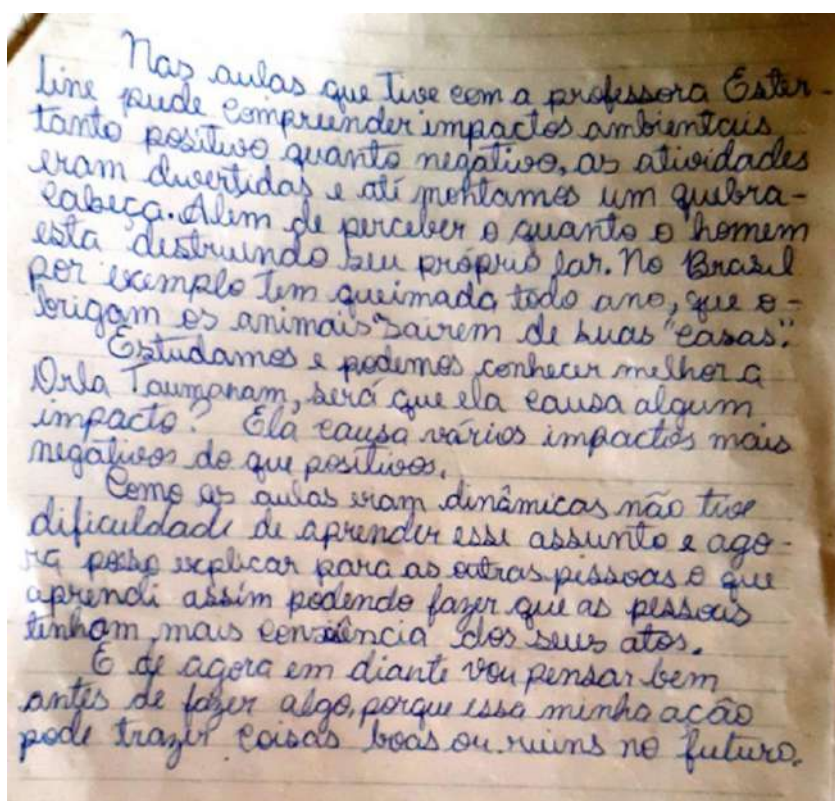 Nas aulas que tive com a professora Ester-
line pude compreender impactos ambientais
tanto positivo quanto negativo, as atividades
eram divertidas e até montamos um quebra-
cabeça. Alem de perceber o quanto o homem
esta destruindo seu próprio lar. No Brasil
por exemplo tem queimada todo ano, que o-
brigam os animais sairem de suas "casas".
Estudamos e podemos conhecer melhor a
Orla Taumanam, será que ela causa algum
impacto? Ela causa vários impactos mais
negativos do que positivos.
Como as aulas eram dinâmicas não tive
dificuldade de aprender esse assunto e ago-
ra posso explicar para as outras pessoas o que
aprendi assim podendo fazer que as pessoas
tenham mais consciência dos seus atos.
E de agora em diante vou pensar bem
antes de fazer algo, porque essa minha ação
pode trazer coisas boas ou ruins no futuro.